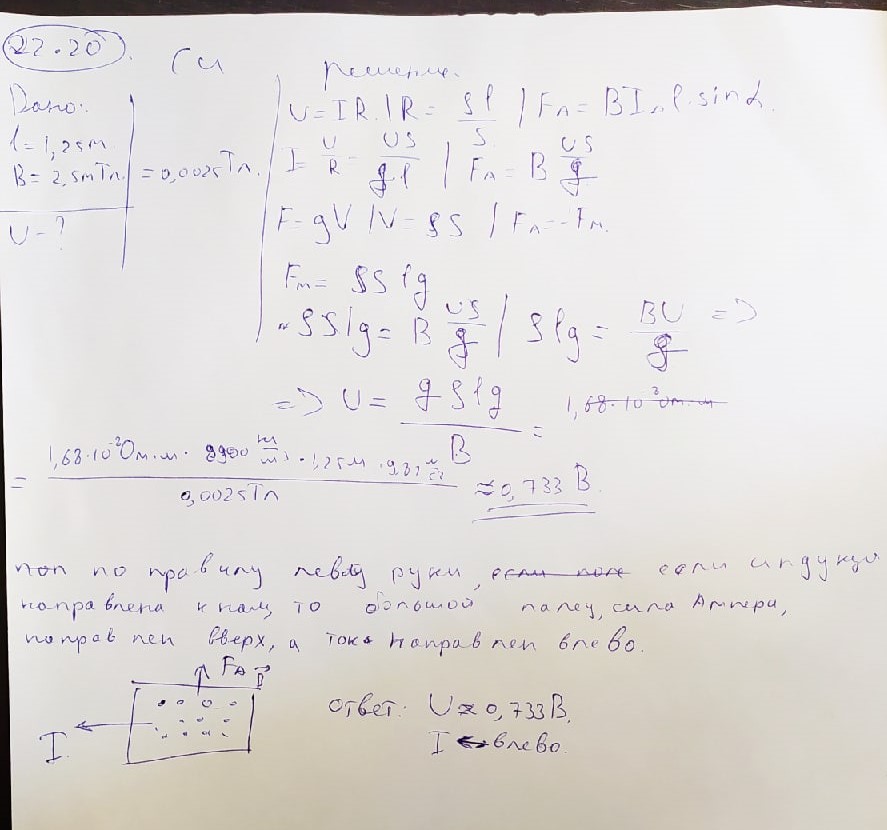 22.20
Си
решение.
Дано:
l = 1,25 м
B = 2,5 мТл = 0,0025 Тл.
U - ?
U = IR | R = ρl/S | Fᴀ = B I l · sin α.
I = U/R = US/ρl | Fᴀ = B US/ρ
F = gV | V = ρS | Fᴀ = -Fм.
Fм = ρS l g
ρSlg = B US/ρ | ρlg = BU/ρ =>
=> U = ρρlg/B =
= 1,68·10⁻²Ом.м. · 8900 кг/м³ · 1,25м · 9,81 м/с² / 0,0025Тл ≈ 0,733 В.
по правилу левой руки, если индукция
направлена к нам, то большой палец, сила Ампера,
направлен вверх, а ток направлен влево.
Fᴀ
I
Ответ: U ≈ 0,733 В.
I ← влево.